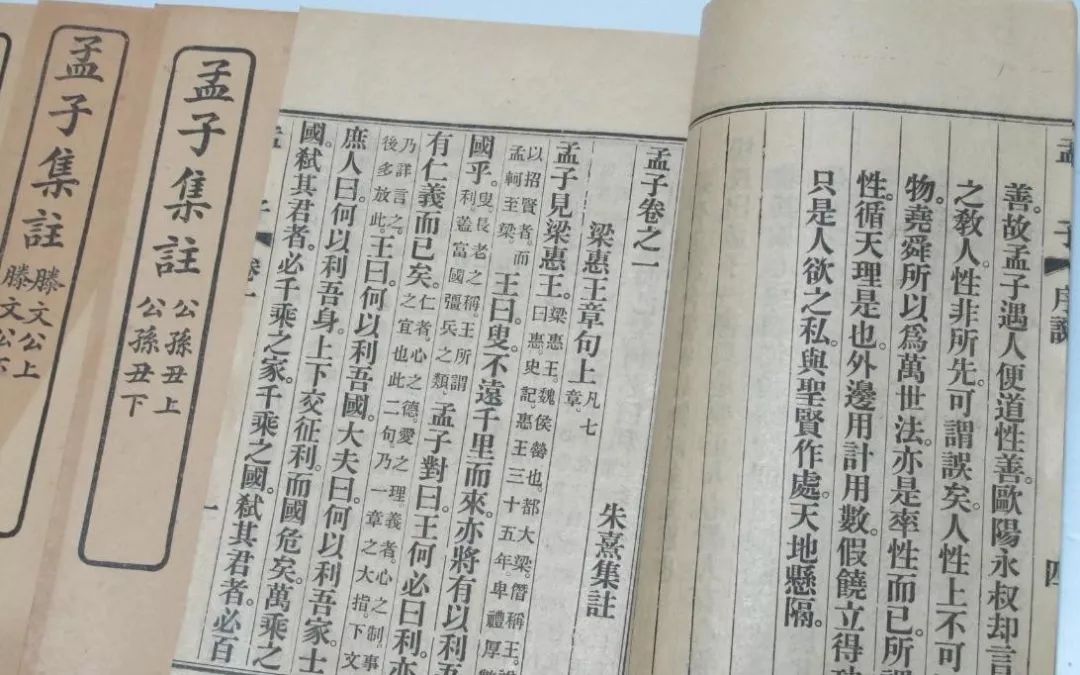 孟子序說 四
善。故孟子遇人便道性善。歐陽永叔却言
之教人。性非所先。可謂誤矣。人性上不可
物。堯舜所以爲萬世法。亦是率性而已。所謂
性。循天理是也。外邊用計用數。假饒立得功
只是人欲之私。與聖賢作處。天地懸隔。
孟子卷之一
梁惠王章句上
凡七
章。
朱熹集註
孟子見梁惠王。
梁惠王。魏侯罃也。都大梁。僭稱王。謚
曰惠。史記。惠王三十五年。卑禮厚幣
以招賢者。而
孟軻至梁。
王曰。叟不遠千里而來。亦將有以利吾
國乎。
叟。長老之稱。王所謂
利。蓋富國彊兵之類。
孟子對曰。王何必曰利。亦
有仁義而已矣。
仁者。心之德。愛之理。義者。心之制。事
之宜也。此二句。乃一章之大指。下文
乃詳言之。
後多放此。
王曰。何以利吾國。大夫曰。何以利吾家。士
庶人曰。何以利吾身。上下交征利。而國危矣。萬乘之
國。弒其君者。必千乘之家。千乘之國。弒其君者。必百
孟子 卷一 一
孟子集註
公孫丑上
公孫丑下
孟子集註
滕文公上
滕文公下